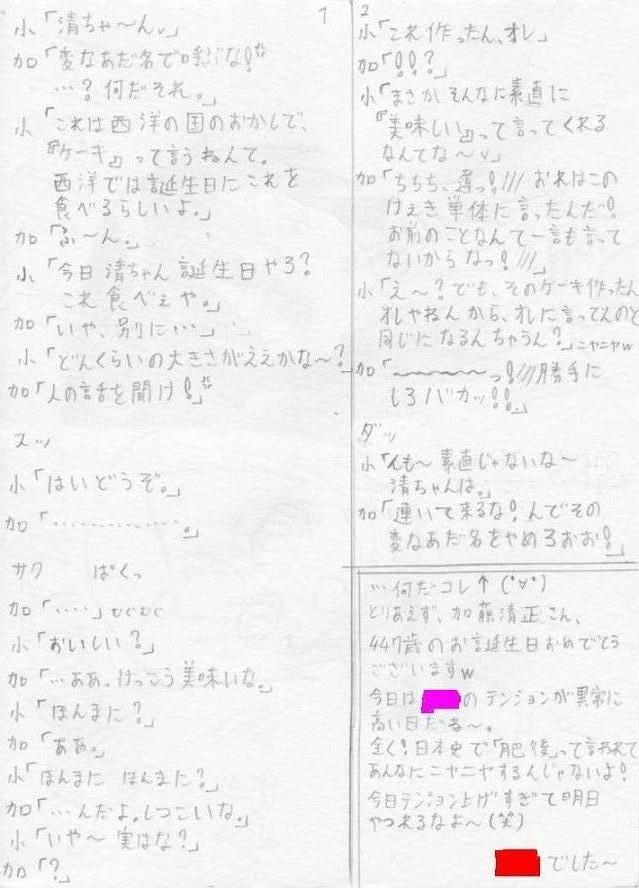 1
小「清ちゃ〜ん♡」
加「変なあだ名で呼ぶな!
…?何だそれ。」
小「これは西洋の国のおかしで、
『ケーキ』って言うねんて。
西洋では誕生日にこれを
食べるらしいよ。」
加「ふ〜ん。」
小「今日清ちゃん誕生日やろ?
これ食べぇや。」
加「いや、別に…」
小「どんくらいの大きさがええかな〜?」
加「人の話を聞け!」
スッ
小「はいどうぞ。」
加「……………。」
サク ぱくっ
加「‥‥」むぐむぐ
小「おいしい?」
加「…ああ。けっこう美味いな。」
小「ほんまに?」
加「ああ。」
小「ほんまに ほんまに?」
加「…んだよ。しつこいな。」
小「いや〜実はな?」
加「?」
2
小「これ作ったん、オレ」
加「!!?」
小「まさかそんなに素直に
『美味しい』って言ってくれる
なんてな〜♡」
加「ちちち、違っ!/// おれはこの
けえき単体に言ったんだ!
お前のことなんて一言も言って
ないからなっ!///」
小「え〜?でも、そのケーキ作ったん
オレやねんから、オレに言ってんのと
同じになるんちゃうん?」ニヤニヤw
加「〜〜〜〜〜っ!///勝手に
しろバカッ!!」
ダッ
小「んも〜素直じゃないな〜
清ちゃんは。」
加「連いて来るな!んでその
変なあだ名をやめろおお!」
…何だコレ↑(°∀°)
とりあえず、加藤清正さん、
447歳のお誕生日おめでとう
ございますw
今日は のテンションが異常に
高い日だね〜。
全く!日本史で「肥後」って言われて
あんなにニヤニヤするんじゃないよ!
今日テンション上げすぎて明日
やつれるなよ〜(笑)
でした〜